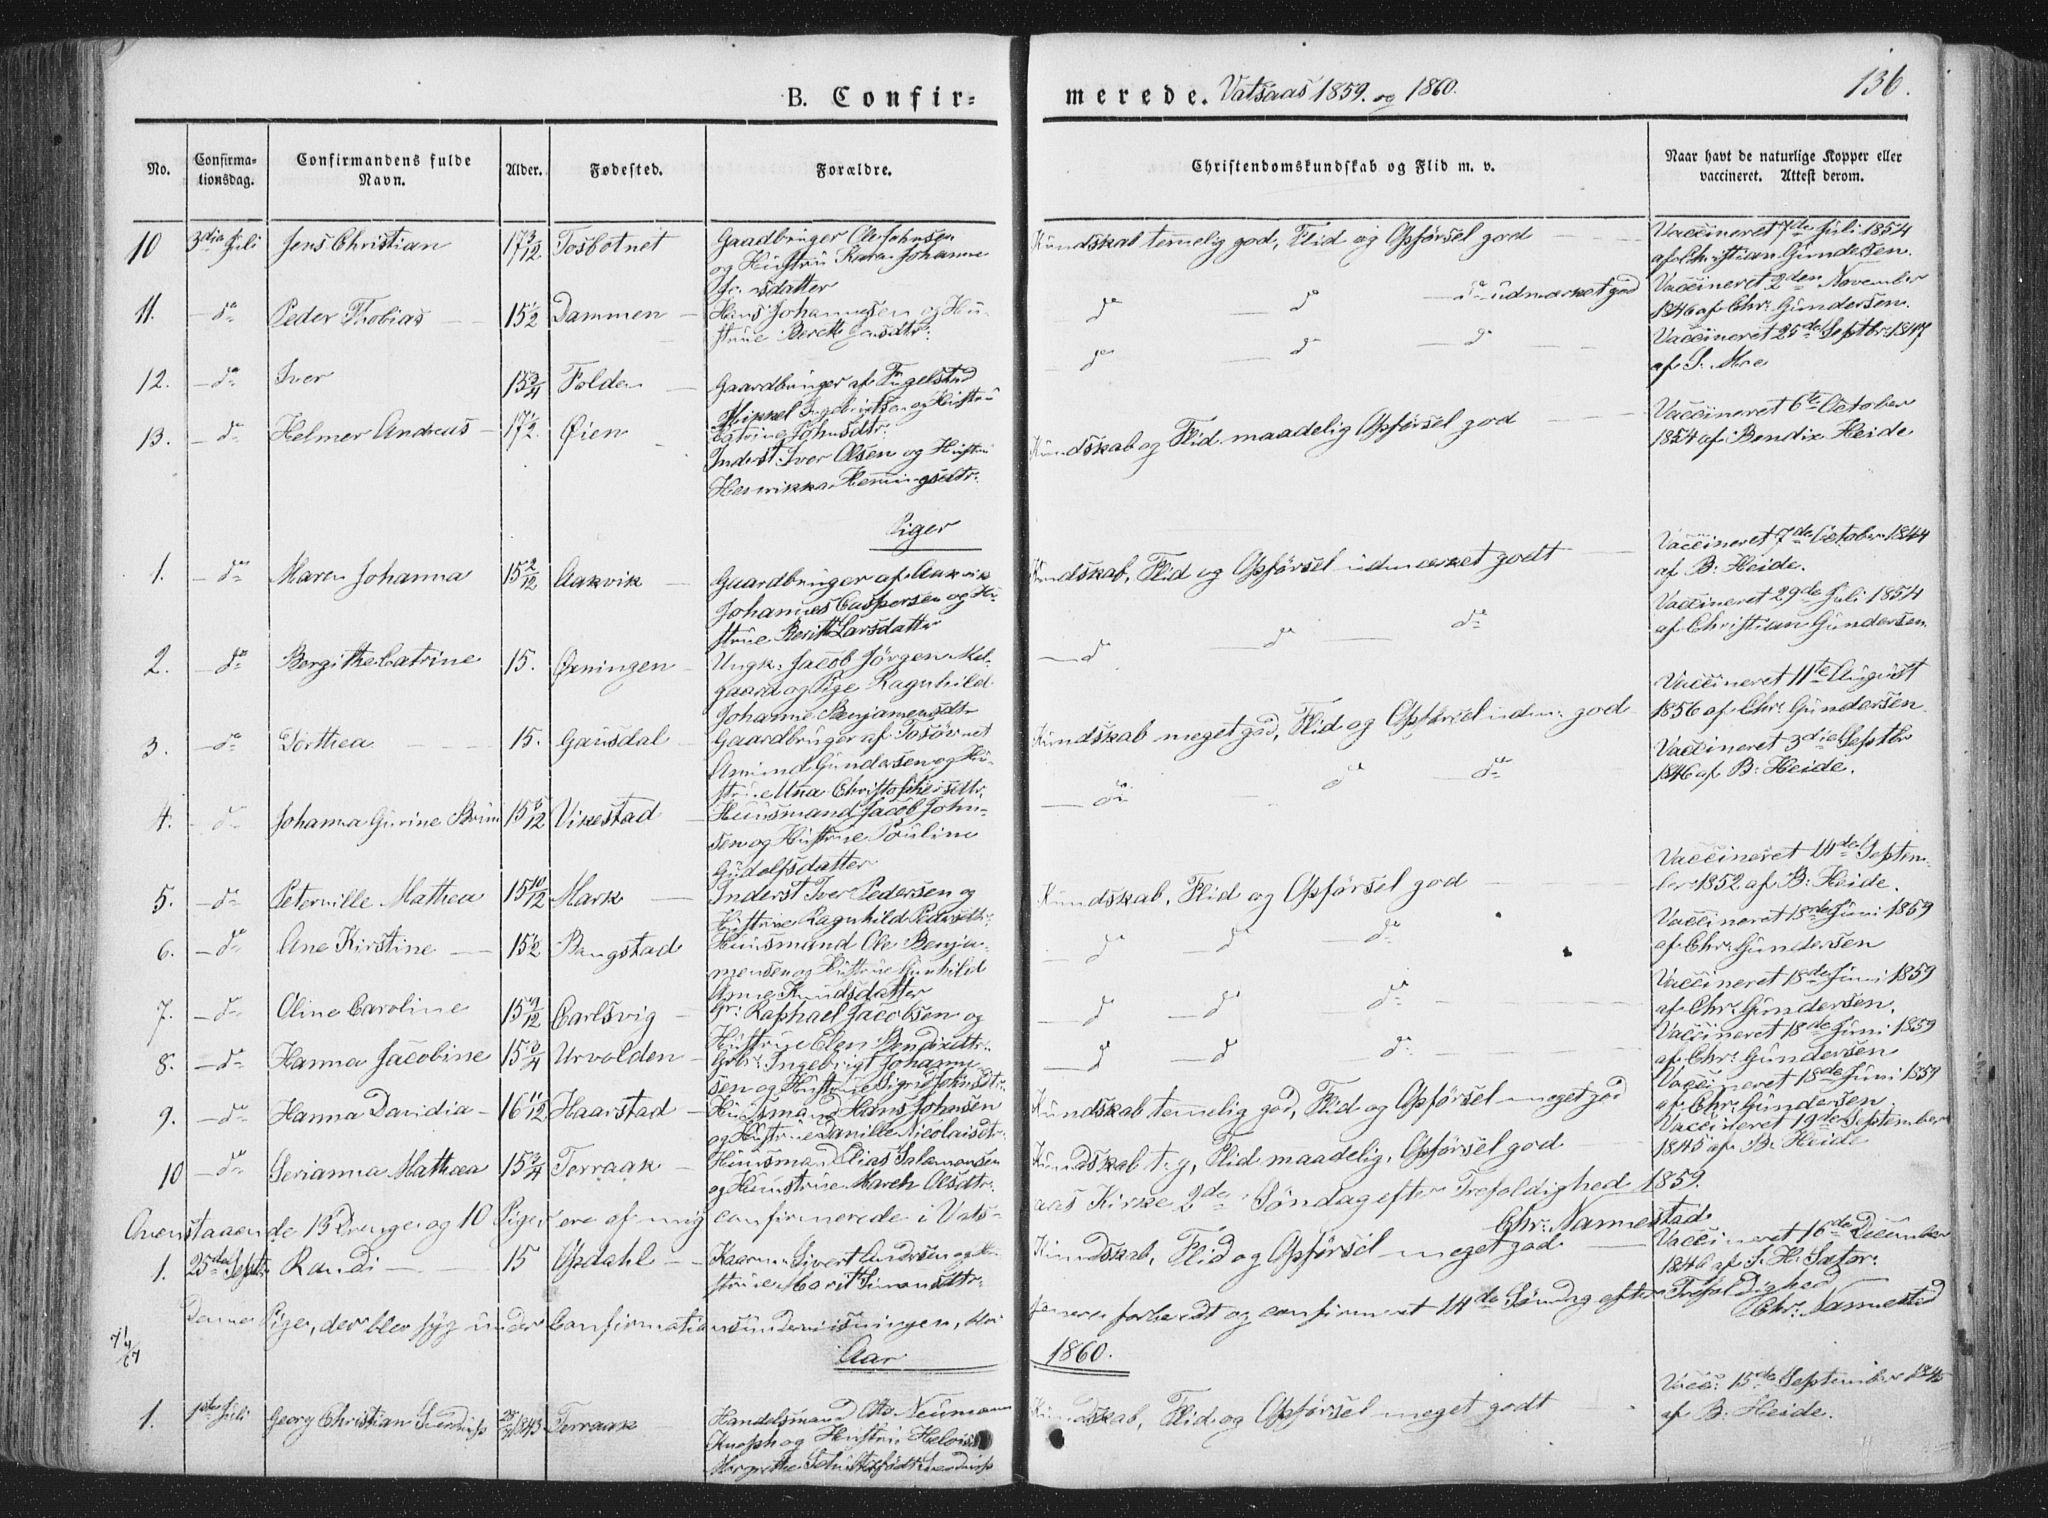 B. Confirmerede. Vatsaas 1859. og 1860.
136.
No.
Confirmationsdag.
Confirmandens fulde Navn.
Alder.
Fødested.
Forældre.
Christendomskundskab og Flid m. v.
Naar havt de naturlige Kopper eller vaccineret. Attest derom.
10 3die Juli Jens Christian 17 3/12 Tosbotnet
Gaardbruger Ole Johnsen
og Hustru Karen Johanna
Kundskab temmelig god, Flid og Opførsel god
Vaccineret 7de Juli 1854
af Christian Gundersen.
11. do Peder Thobias 15 1/2 Dammen
Hans Johannesen og Hu-
strue Berett Jensdtr:
do do do udmærket god
Vaccineret 2den November
1846 af Chr: Gundersen.
12. do Iver 15 3/4 Folden
Gaardbruger af Fugelstad
Mikkel Ingebrigtsen og Hustru
Catrine Johnsdtr:
do do do
Vaccineret 25de Septbr: 1847
af S. Moe
13. do Helmer Andreas 17 1/2 Øien
Inderst Iver Olsen og Hustru
Henrikka Hemingsdtr:
Kundskab og Flid maadelig Opførsel god
Vaccineret 6te October
1854 af Bendix Heide
Piger
1. do Maren Johanna 15 2/12 Aakvik
Gaardbruger af Aakvik
Johannes Caspersen og Hu-
strue Berith Larsdatter
Kundskab, Flid og Opførsel udmærket godt
Vaccineret 7de October 1844
af B: Heide.
2. do Bergithe Catrine 15. Øxningen
Ungk: Jacob Jørgen Mel-
gaard og Pige Ragnhild
Johanne Benjamensdtr
do do do
Vaccineret 29de Juli 1854
af Christian Gundersen
3. do Dorthea 15. Gausdal
Gaardbruger af Tosbotnet
Amund Gundersen og Hu-
strue Christophersdtr.
Kundskab meget god, Flid og Opførsel udm: god
Vaccineret 11te August
1856 af Chr: Gundersen
4. do Johanna Gurine 15 /12 Vikestad
Huusmand Jacob John-
sen og Hustrue Pouline
Gudolfsdatter
do do do
Vaccineret 3die Septbr
1846 af B: Heide.
5. do Peternille Mathea 15 10/12 Mark
Inderst Iver Pedersen og
Hustrue Ragnhild Pedersdtr:
Kundskab, Flid og Opførsel god
Vaccineret 14de Septem-
ber 1852 af B: Heide.
6. do Ane Kirstine 15 1/2 Bangstad
Huusmand Ole Benja-
mensen og Hustrue Gunhild
Anne Knudsdatter
do do do
Vaccineret 18de Juni 1859
af Chr: Gundersen
7. do Oline Caroline 15 /12 Carlsvig
Gr: Raphael Jacobsen og
Hustrue Elen Bendixdtr:
do do do
Vaccineret 18de Juni 1859
af Chr: Gundersen.
8. do Hanna Jacobine 15 3/4 Urvolden
Grbr: Ingebrigt Johanne-
sen og Hustrue Signe Johnsdtr.
do do do
Vaccineret 18de Juni 1859
af Chr: Gundersen
9. do Hanna Davidia 16 11/12 Haarstad
Huusmand Hans Johnsen
og Hustrue Danille Nicolaisdtr.
Kundskab temmelig god, Flid og Opførsel meget god
Vaccineret 18de Juni 1859
af Chr: Gundersen.
10 do Serianna Mathea 15 3/4 Terraak
Huusmand Elias Salamonsen
og Huustrue Mareh Olsdtr:
Kundskab t. g, Flid maadelig, Opførsel god
Vaccineret 19de September
1845 af B: Heide
Ovenstaaende 13 Drenge og 10 Piger ere af mig confirmerede i Vats-
aas Kirke 2de Søndag efter Trefoldighed 1859.
Chr: Nannestad
1. 25de Septr Randi 15 Opdahl
Kaarmand Sivert Andersen og Hu-
strue Marit Simonsdtr:
Kundskab, Flid og Opførsel meget god
Vaccineret 16de December
1846 af S. H. Sæter:
Denne Pige, der blev syg under Confirmationsundervisningen, blev
senere forberedt og confirmeret 14de Søndag efter Trefoldighed
Chr: Nannestad
Aar 1860.
1. 1ste Juli Georg Christian 1843 Terraak
Handelsmand Otto Neumann
Knoph og Hustru Heloise
Margrethe Schults født
Kundskab, Flid og Opførsel meget godt
Vacc: 15de September 1845
af B: Heide.